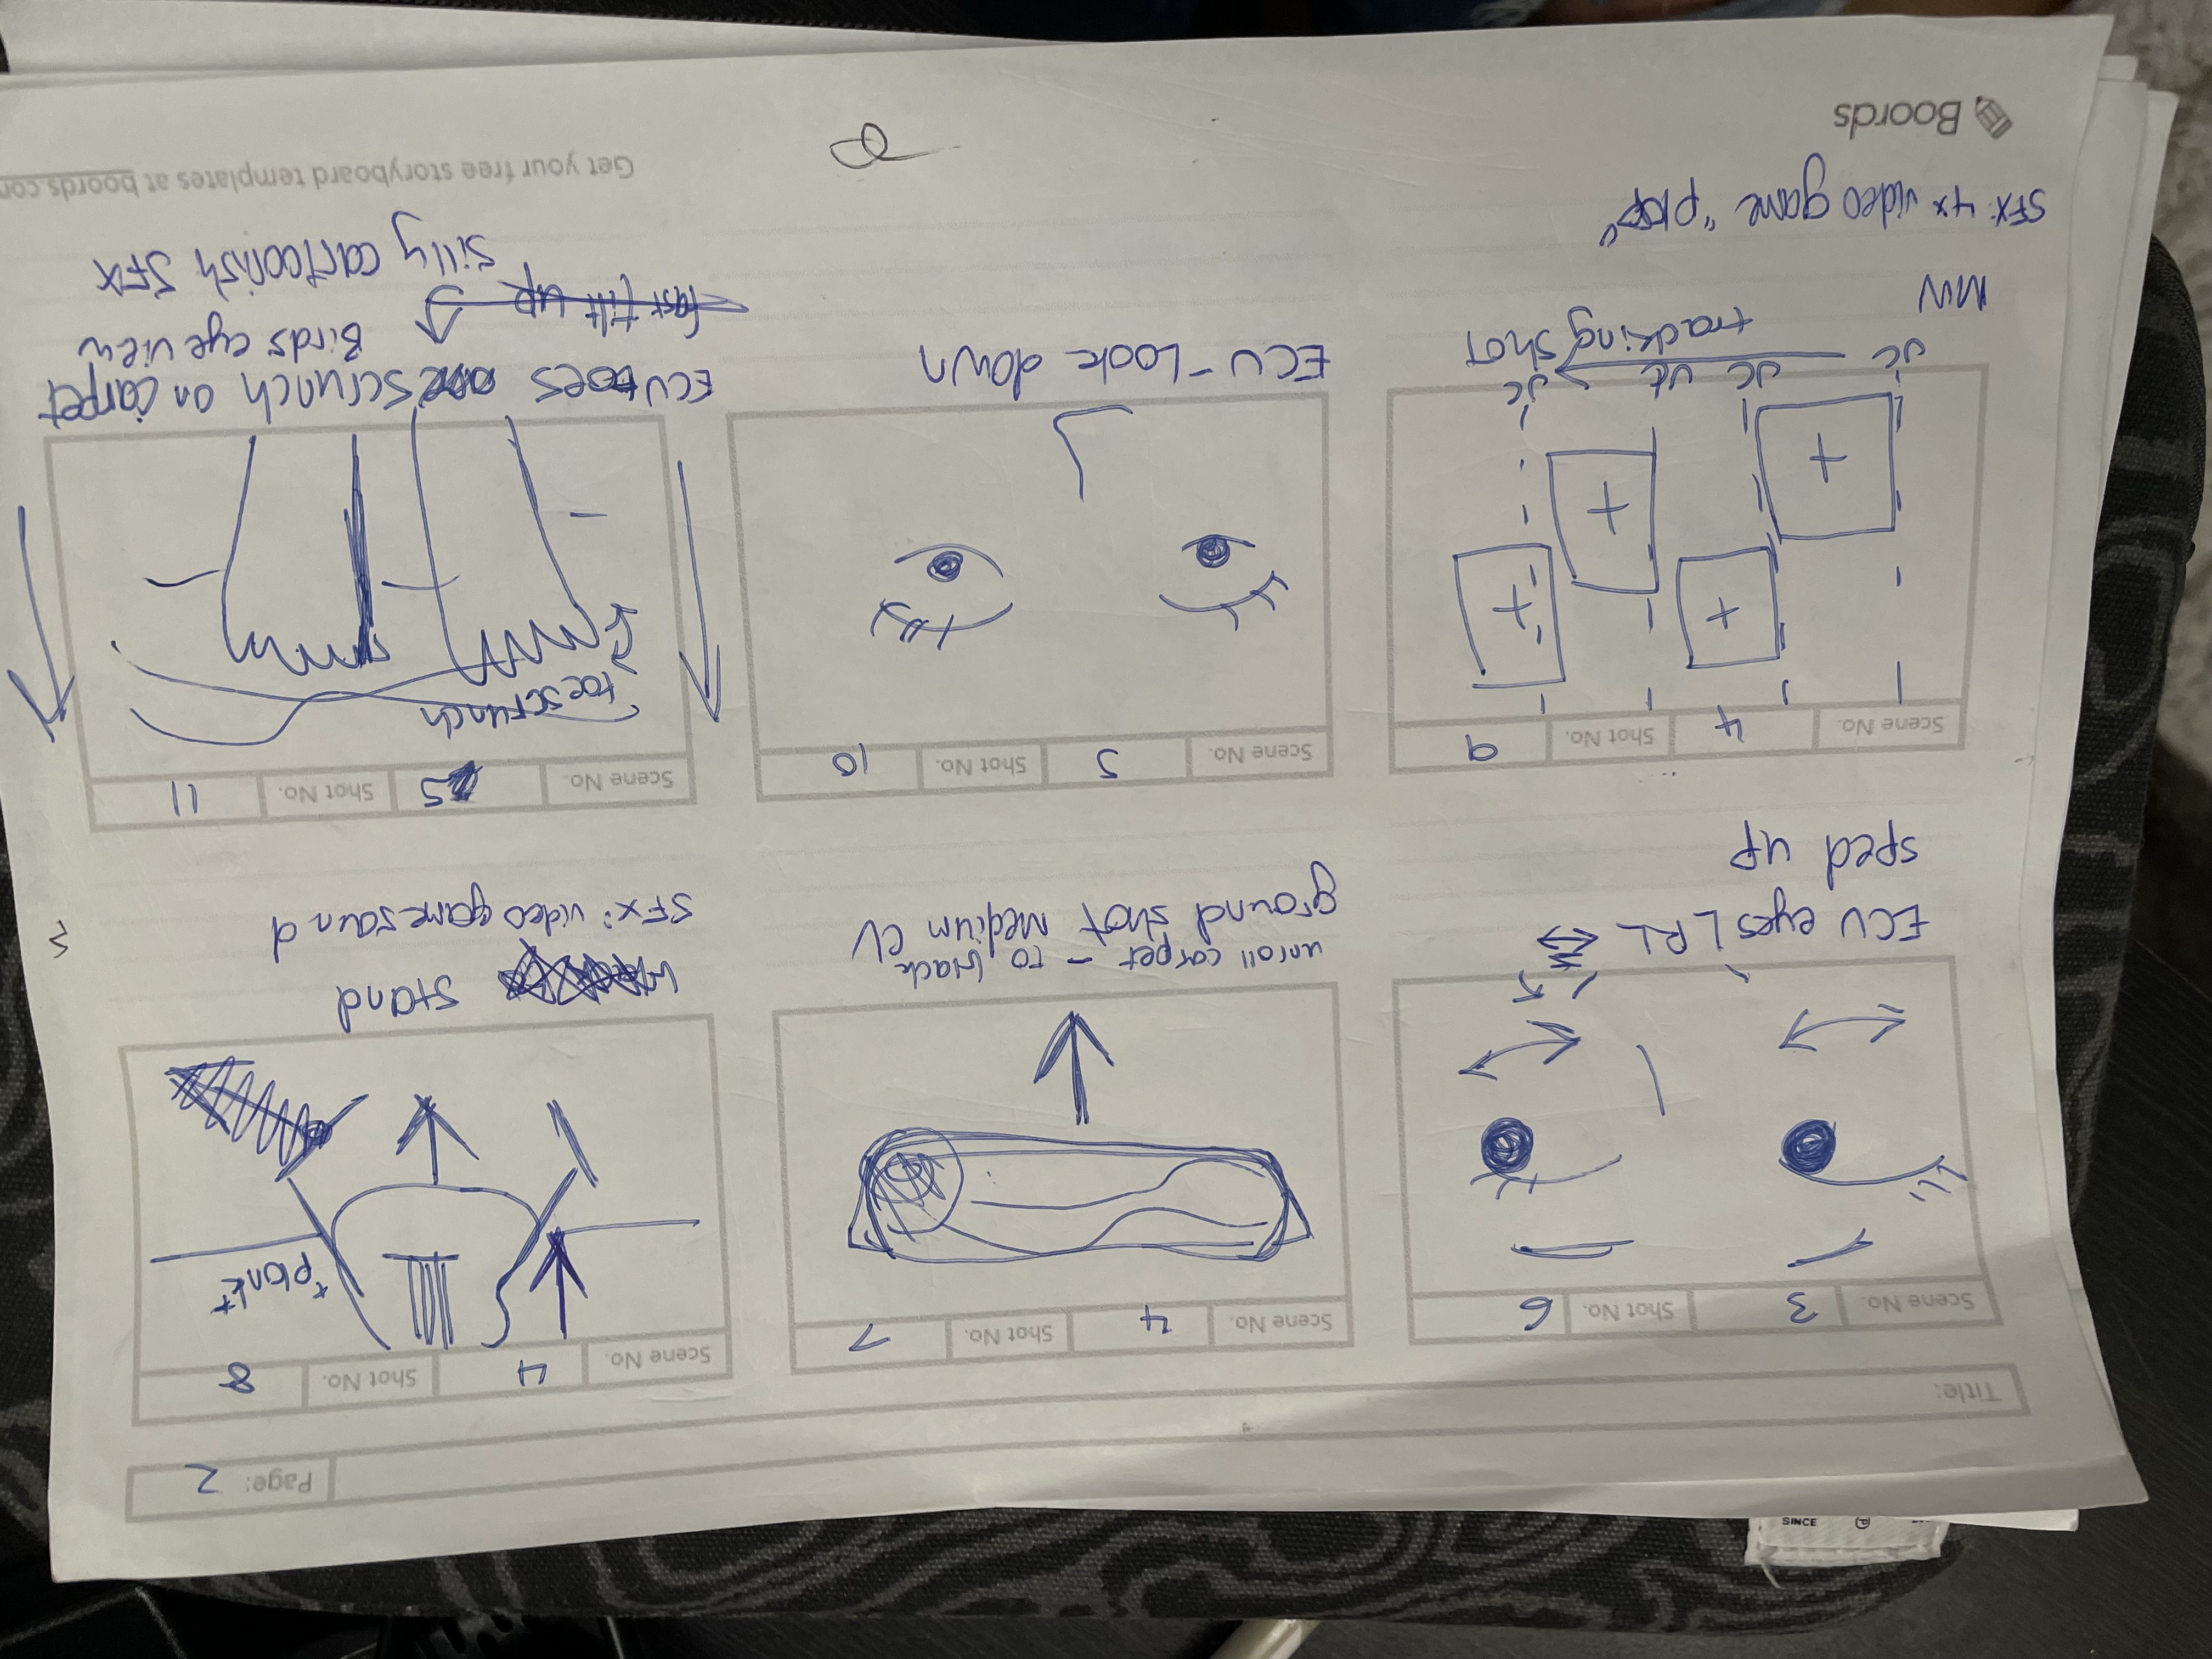 Title:
Page: 2
Scene No. 3 Shot No. 6
ECU eyes L RL
sped up
Scene No. 4 Shot No. 7
unroll carpet - To black
ground shot - Medium CU
Scene No. 4 Shot No. 8
*plonk*
Stand
SFX: video game sound
Scene No. 4 Shot No. 9
tracking shot
MW
SFX: 4x video game
Scene No. 5 Shot No. 10
ECU - Look down
Scene No. 5 Shot No. 11
toe scrunch
ECU toes scrunch on carpet
Birds eye view
fast tilt up
silly cartoonish SFX
Boords
Get your free storyboard templates at boords.com
SINCE